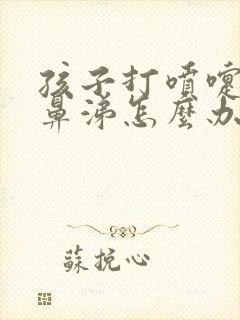 孩子打噴嚏
鼻涕怎麼办
蘇挽心